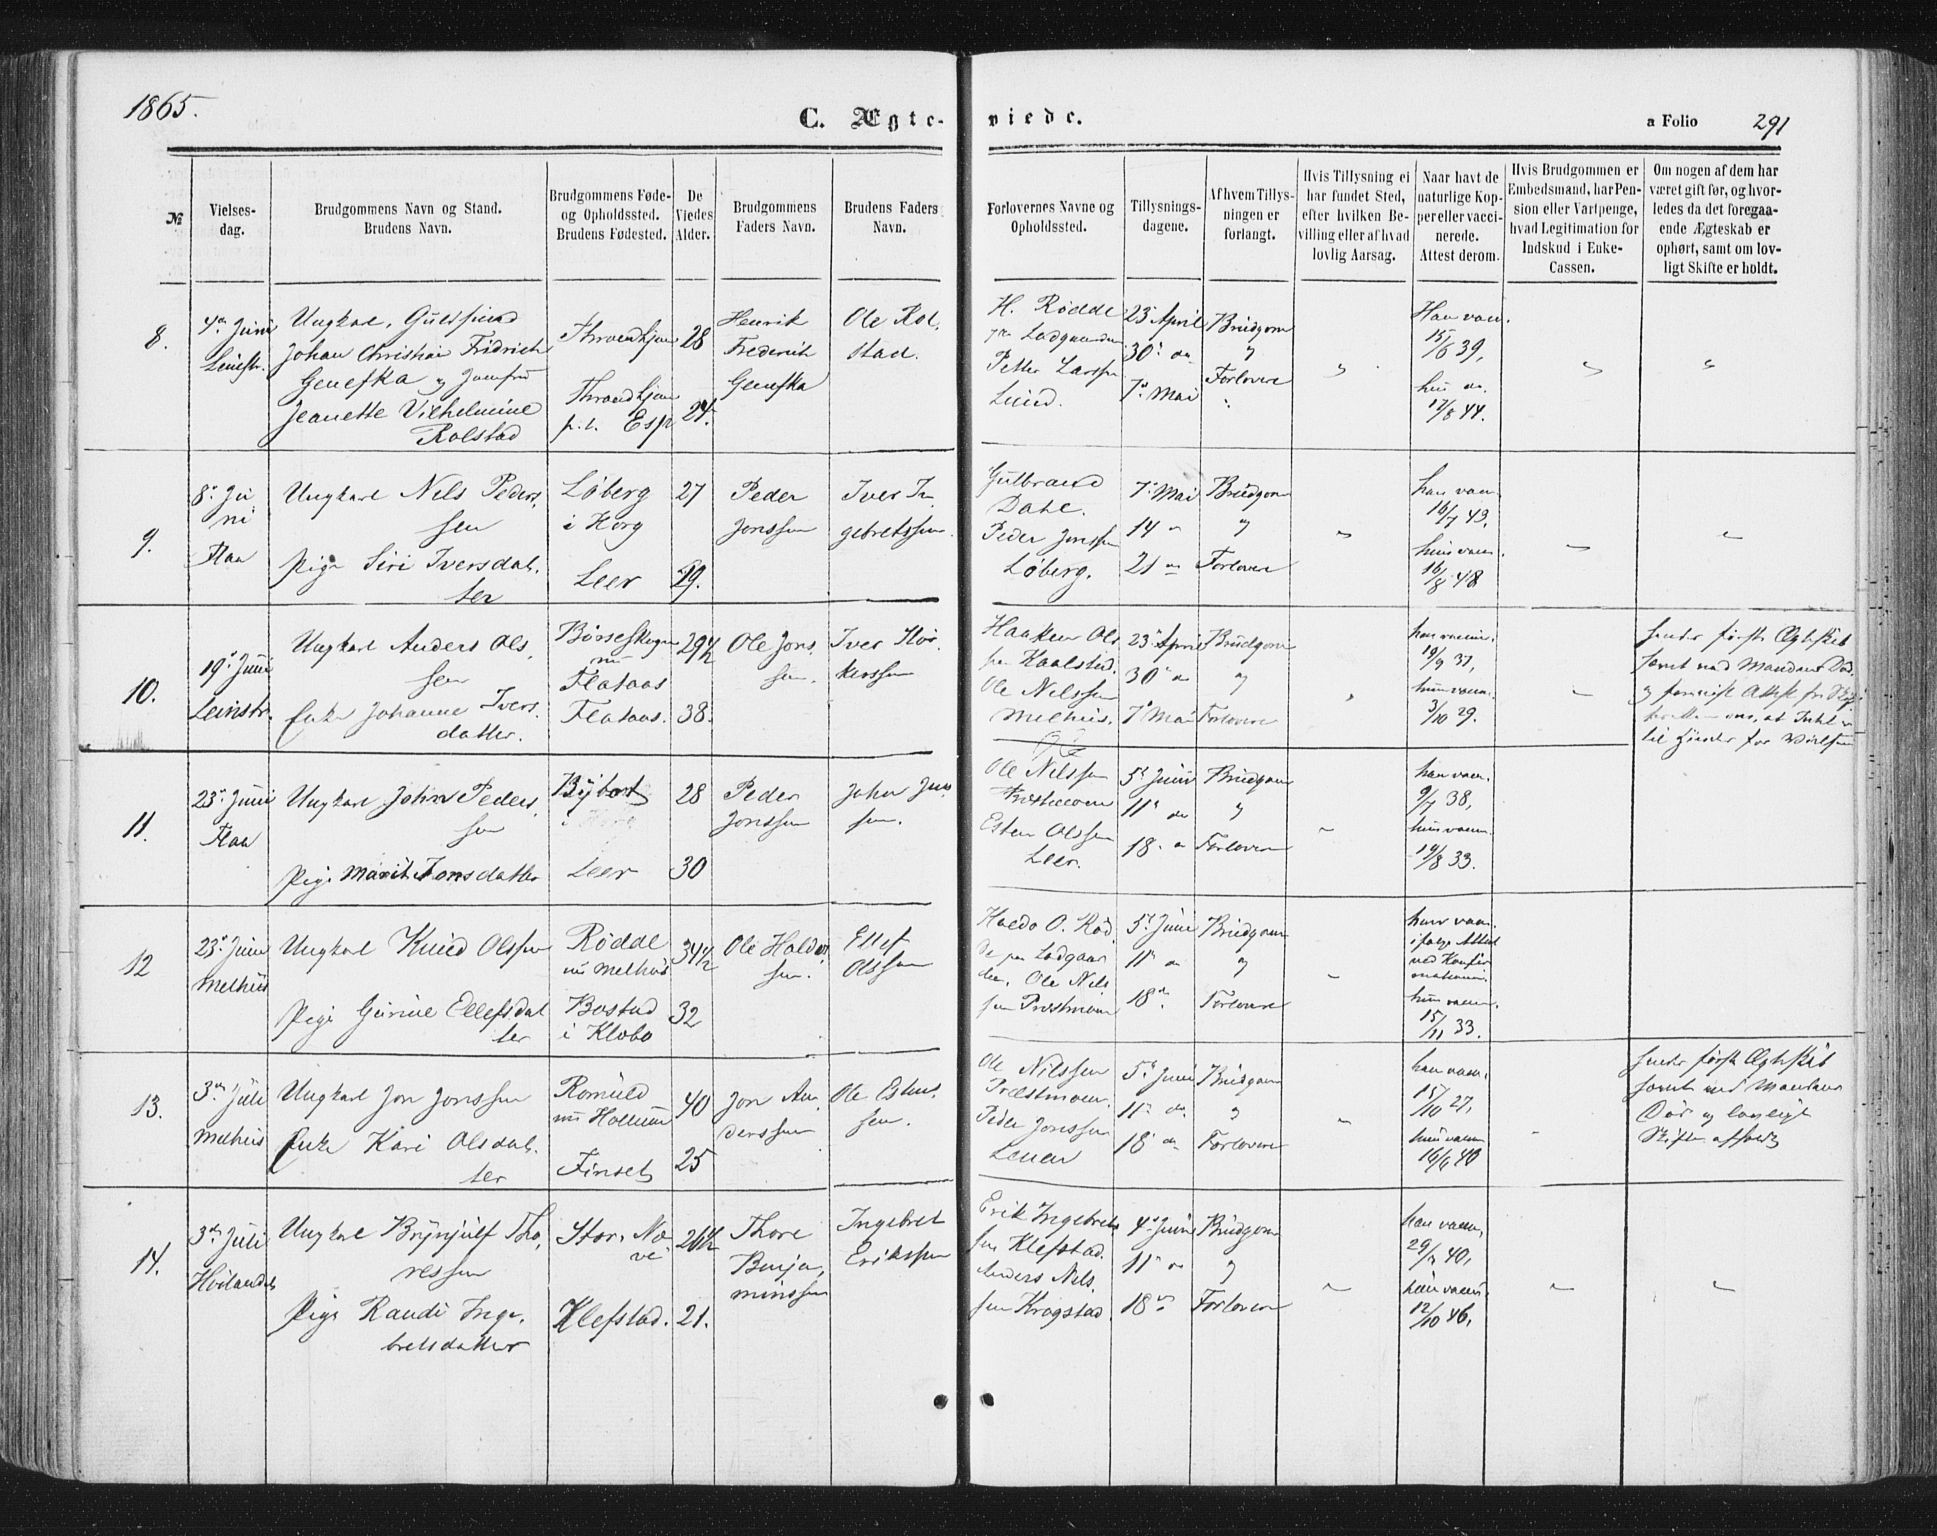 1865.
C. Ægte-
viede.
a Folio 291
№
Vielses-
dag.
Brudgommens Navn og Stand.
Brudens Navn.
Brudgommens Føde-
og Opholdssted.
Brudens Fødested.
De
Viedes
Alder.
Brudgommens
Faders Navn.
Brudens Faders
Navn.
Forlovernes Navne og
Opholdssted.
Tillysnings-
dagene.
Af hvem Tillys-
ningen er
forlangt.
Hvis Tillysning ei
har fundet Sted,
efter hvilken Be-
villing eller af hvad
lovlig Aarsag.
Naar havt de
naturlige Kop-
per eller vacci-
nerede.
Attest derom.
Hvis Brudgommen er
Embedsmand, har Pen-
sion eller Vartpenge,
hvad Legitimation for
Indskud i Enke-
Cassen.
Om nogen af dem har
været gift før, og hvor-
ledes da det foregaa-
ende Ægteskab er
ophørt, samt om lov-
ligt Skifte er holdt.
8.
4de Juni
Leinstr.
Ungkarl, Guldsmed
Johan Christian Fridrich
Genefka og Jomfru
Jeanette Vilhelmine
Rolstad
Throndhjem
Throndhjem
p.t. Esp
28
24.
Henrik
Frederich
Genefka
Ole Rol.
stad.
H. Rødde
Petter Larssen
Lund.
23 April
30 do
7 Mai
Brudgom
"
Forlovere
Han vacc.
15/6 39,
hun do.
12/8 44.
9.
8de Ju
ni
Flaa
Ungkarl Nils Peders,
sen
Pige Siri Iversdat.
ter
Løberg
i Horg
Leer
27
19.
Peder
Jonssen
Iver In
gebretssen.
Gulbrand
Dahl.
Peder Jonssen
Løberg.
7 Mai
14 do
21 do
Brudgom
"
Forlovere
han vacc.
16/7 43,
hun vacc.
16/8 48
10.
19 Juni
Leinstr.
Ungkarl Anders Ols,
sen
Enke Johanne Ivers.
datter.
Børseskogn
nu
Flataas
Flataas.
29 1/2
38.
Ole Jons,
sen.
Iver Hor
kerssen
Haaken Ols
Kaalstad.
Ole Nilssen
Melhus.
23 April
30 do
7 Mai
Brudgom
"
Forlovere
han vaccin.
19/9 37,
hun vacc.
3/10 29.
hendes første Ægteskab
hævet ved Mandens Død,
11.
23 Juni
Flaa
Ungkarl John Peders,
sen
Pige Marit Jonsdatter
Bybort
Leer
28
30
Peder
Jonssen
John Jons
sen.
Ole Nilssen
Præstmoen
Esten Olssen
Leer.
5 Juni
11 do
18 do
Brudgom
"
Forlovere
han vacc.
9/7 38,
hun vacc.
14/8 33.
12
23 Juni
Melhus
Ungkarl Knud Olssen
Pige Gurine Ellefsdat
ter
Rødde
nu Melhus
Bostad
i Klæbo
34 1/2
32
Ole Haldor,
sen.
Ellef
Olssen
Haldo O. Rød,
de paa Ladgaar
den. Ole Nils
sen Præstmoen
5 Juni
11 do
18 do.
Brudgom
"
Forlovere
han vacc.
ifølge Attest
ved Konfir
mationen.
hun vacc.
15/11 33.
13.
3de Juli
Melhus
Ungkarl Jon Jonssen
Enke Kari Olsdat.
ter
Romuld
nu Hollum
Finset
40
25
Jon An,
derssen
Ole Estens,
sen.
Ole Nilssen
Præstmoen.
Peder Jonssen
5 Juni
11 do.
18 do
Brudgom
"
Forlovere
han vacc.
15/10 27,
hun vacc.
16/6 40
hendes første Ægteskab
hævet ved Mandens
Død og lovligt
Skifte afholdt
14.
3de Juli
Høilandet
Ungkarl Brynjulf Tho,
ressen
Pige Randi Inge,
bretsdatter
Klefstad.
26 1/2
21.
Thore
Benja,
minssen
Ingebret
Erikssen
Erik Ingebrets
sen Klefstad.
Anders Nils,
sen Krogstad.
4 Juni
11 do
18 do
Brudgom
"
Forlovere
han vacc,
29/7 40,
hun vacc.
12/10 46,